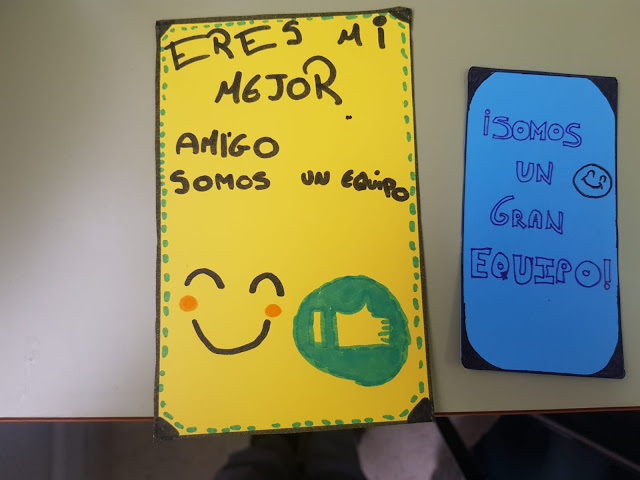 ERES MI
MEJOR
AMIGO
SOMOS UN EQUIPO
¡SOMOS
UN
GRAN
EQUIPO!